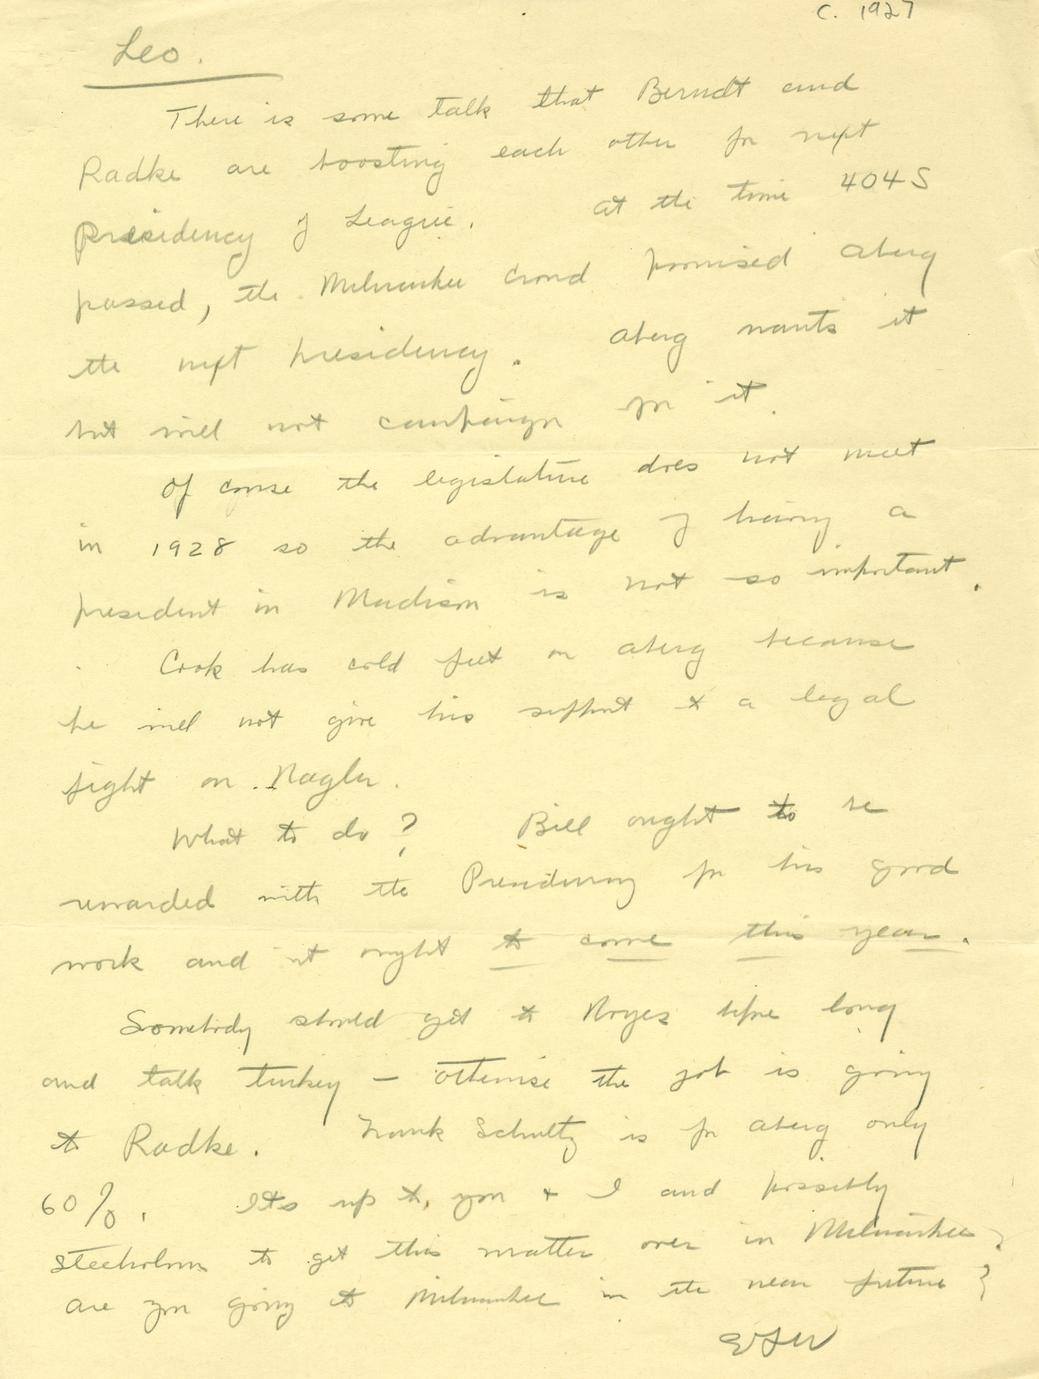 c. 1927
Leo.
There is some talk that Berndt and
Radke are boosting each other for next
presidency of League. At the time 404S
passed, the Milwaukee crowd promised Aberg
the next presidency. Aberg wants it
but will not campaign for it.
Of course the legislature does not meet
in 1928 so the advantage of having a
president in Madison is not so important.
Cook has cold feet on Aberg because
he will not give his support to a legal
fight on Nagler.
What to do? Bill ought to be
rewarded with the Presidency for his good
work and it ought to come this year.
Somebody should get to Noyes before long
and talk turkey – otherwise the job is going
to Radke. Frank Schultz is for Aberg only
60%. Its up to you + I and possibly
Steeholm to get this matter over in Milwaukee.
Are you going to Milwaukee in the near future?